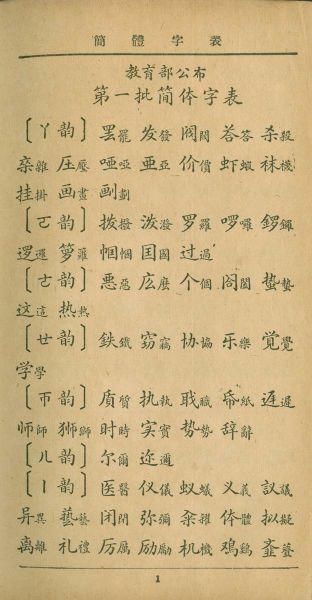 簡體字表
教育部公布
第一批简体字表
〔ㄚ韵〕罢罷 发發 阀閥 荅答 杀殺
杂雜 压壓 哑啞 亚亞 价價 虾蝦 袜襪
挂掛 画畫 劃
〔ㄛ韵〕拨撥 泼潑 罗羅 啰囉 鑼
逻邏 箩籮 帼幗 国國 过過
〔ㄜ韵〕恶惡 庅麼 个個 阁閣 蛰蟄
这這 热熱
〔ㄝ韵〕鉄鐵 窃竊 协協 乐樂 覚覺
学學
〔ㄭ韵〕质質 执執 职職 帋紙 迟遲
师師 狮獅 时時 实實 势勢 辞辭
〔ㄦ韵〕尔爾 迩邇
〔ㄧ韵〕医醫 仪儀 蚁蟻 义義 議
异異 藝 闭閉 弥彌 籴糴 体體 拟擬
离離 礼禮 厉厲 励勵 机機 鸡鷄
1